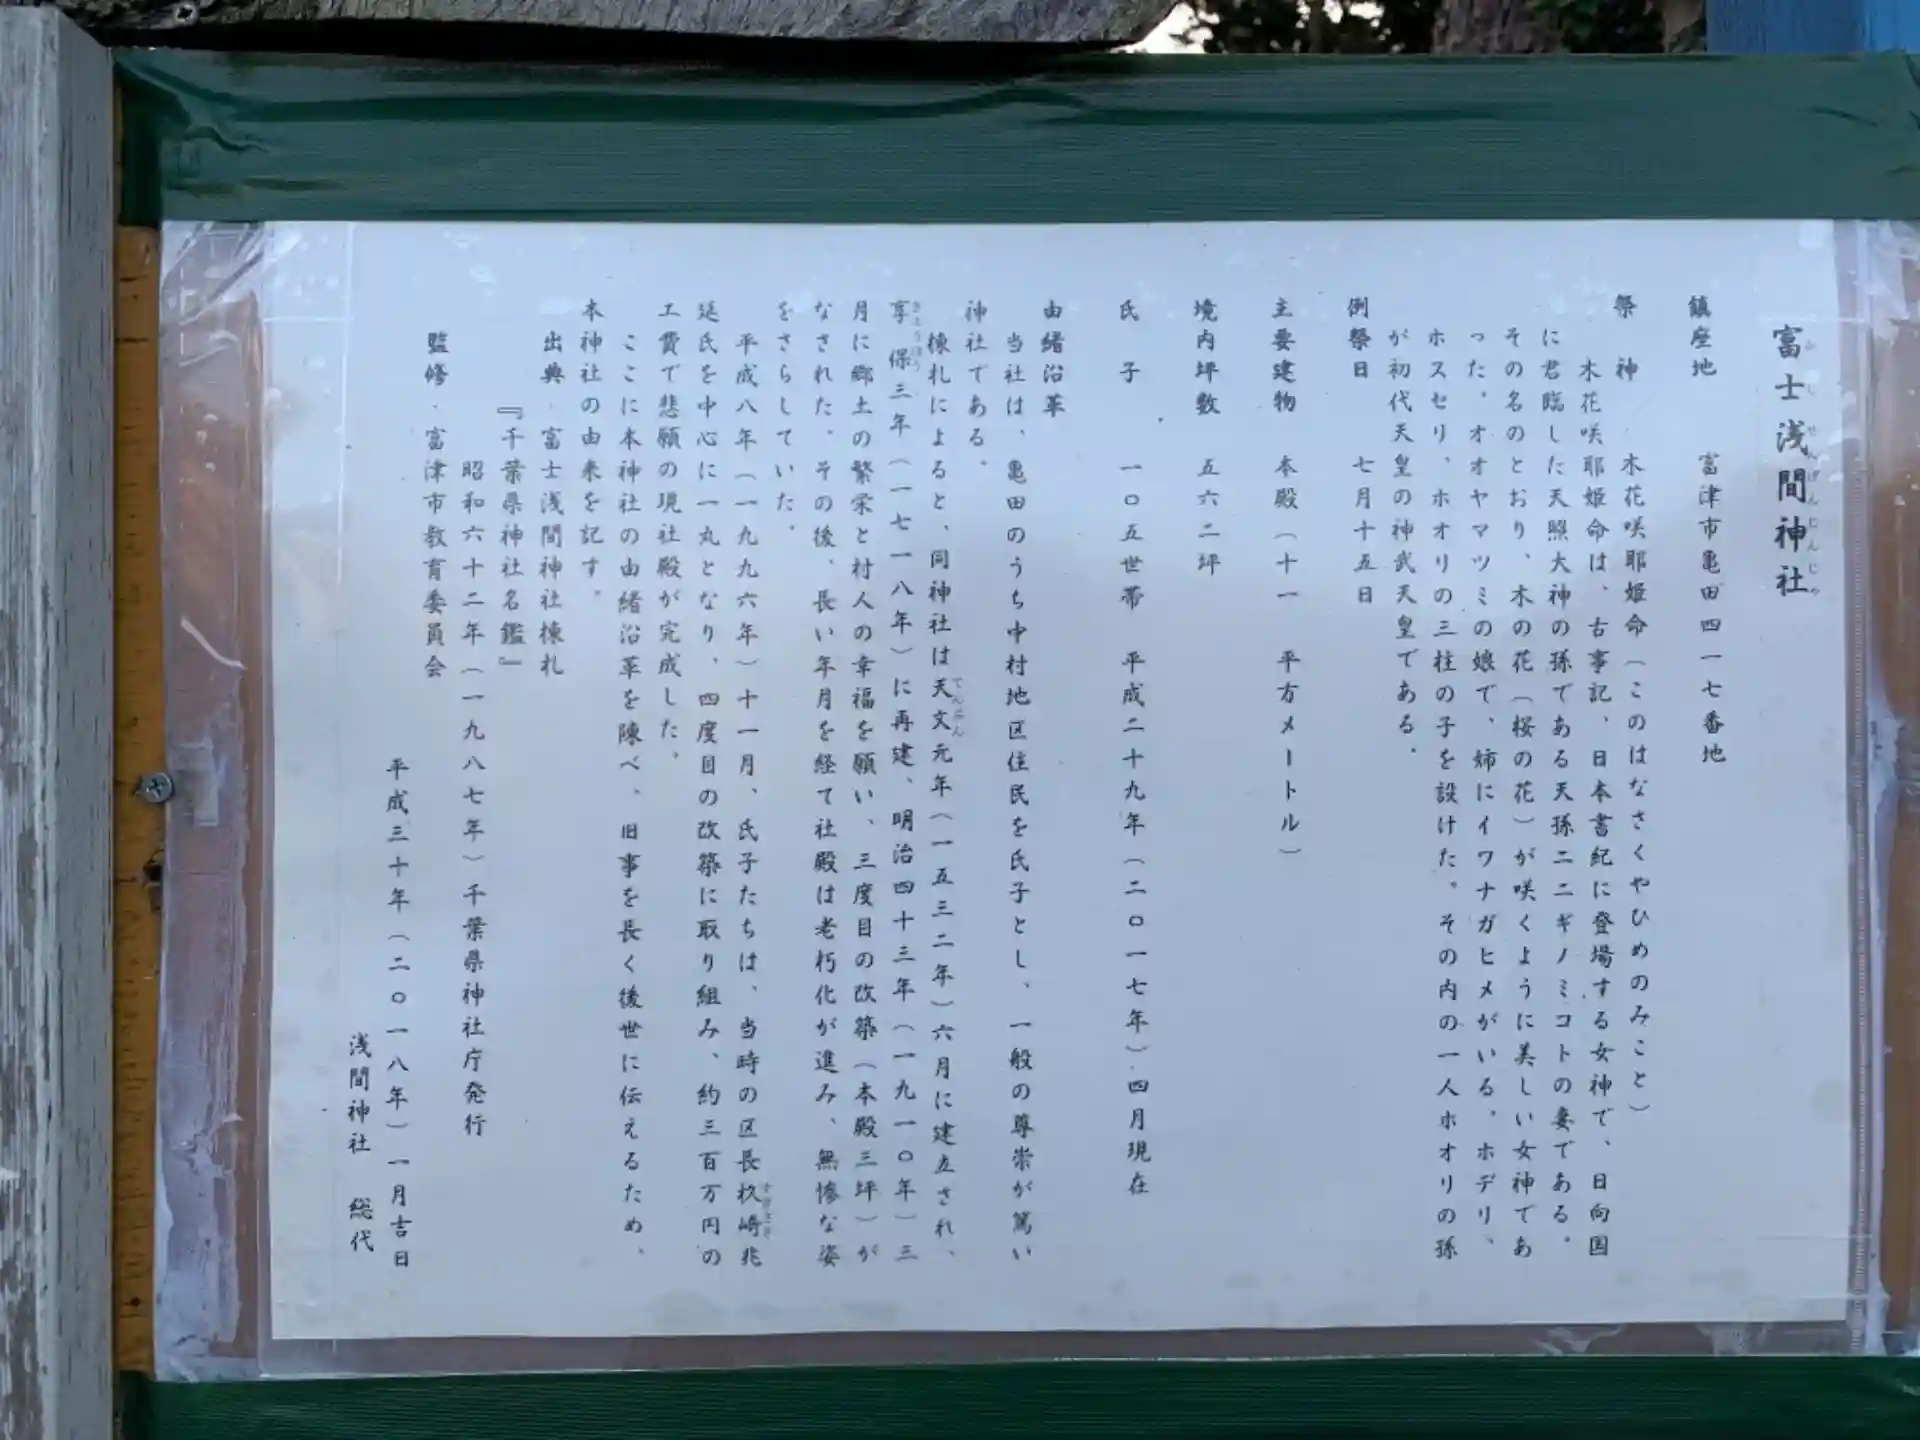 富士浅間神社
鎮座地　富津市亀田四一七番地
祭　神　木花咲耶姫命（このはなさくやひめのみこと）
木花咲耶姫命は、古事記、日本書紀に登場する女神で、日向国
に君臨した天照大神の孫である天孫ニニギノミコトの妻である。
その名のとおり、木の花（桜の花）が咲くように美しい女神であ
った。オオヤマツミの娘で、姉にイワナガヒメがいる。ホデリ、
ホスセリ、ホオリの三柱の子を設けた。その内の一人ホオリの孫
が初代天皇の神武天皇である。
例祭日　七月十五日
主要建物　本殿（十一　平方メートル）
境内坪数　五六二坪
氏　子　一〇五世帯　平成二十九年（二〇一七年）四月現在
由緒沿革
当社は、亀田のうち中村地区住民を氏子とし、一般の尊崇が篤い
神社である。
棟札によると、同神社は天文元年（一五三二年）六月に建立され、
享保三年（一七一八年）に再建、明治四十三年（一九一〇年）三
月に郷土の繁栄と村人の幸福を願い、三度目の改築（本殿三坪）が
なされた。その後、長い年月を経て社殿は老朽化が進み、無惨な姿
をさらしていた。
平成八年（一九九六年）十一月、氏子たちは、当時の区長杦崎兆
延氏を中心に一丸となり、四度目の改築に取り組み、約三百万円の
工費で悲願の現社殿が完成した。
ここに本神社の由緒沿革を陳べ、旧事を長く後世に伝えるため、
本神社の由来を記す。
出典．富士浅間神社棟札
『千葉県神社名鑑』
昭和六十二年（一九八七年）千葉県神社庁発行
監修．富津市教育委員会
平成三十年（二〇一八年）一月吉日
浅間神社　総代